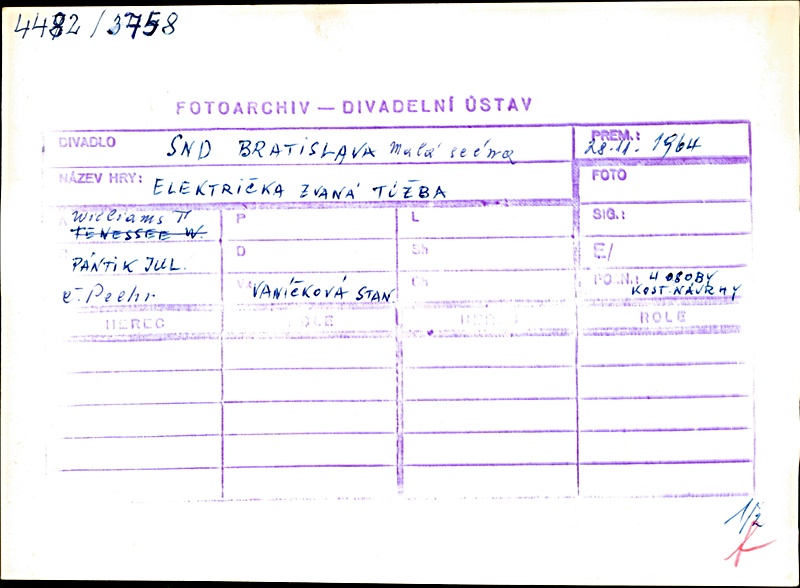 4482/3758
FOTOARCHIV — DIVADELNÍ ÚSTAV
DIVADLO SND BRATISLAVA Malá scéna
PREM.: 28.11. 1964
NÁZEV HRY: ELEKTRIČKA ZVANÁ TÚŽBA
FOTO
Williams T P L SIG.:
TENESSEE W.
D Sh E/
PÁNTIK JUL.
č. Pechr VANÍČKOVÁ STAN. Ch POZN.: 4 OSOBY
KOST. NÁVRHY
HEREC ROLE HEREC ROLE
1/2